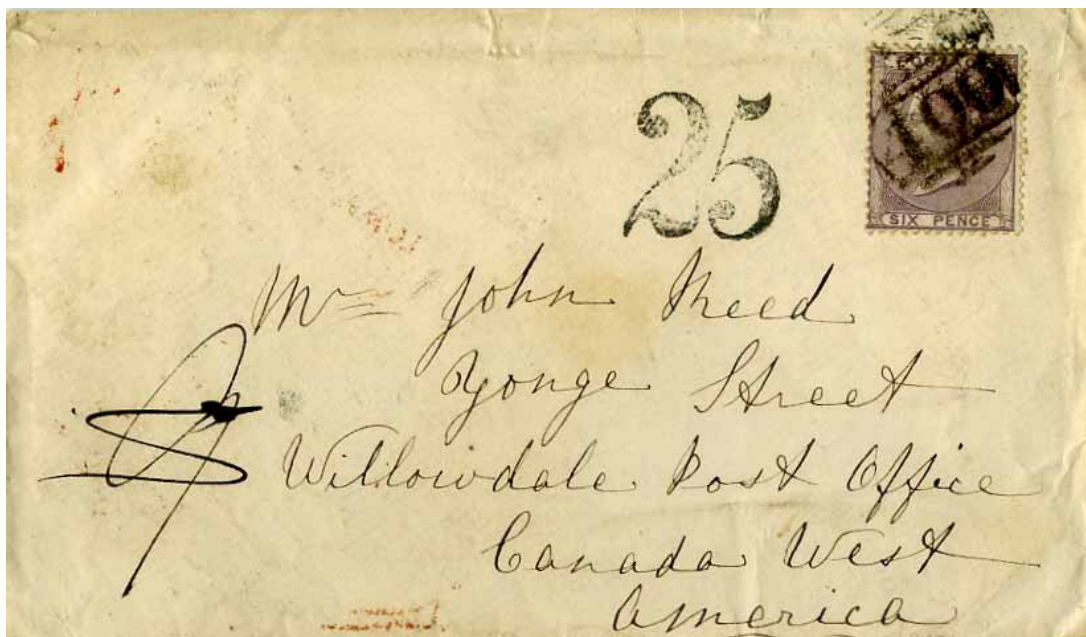 25
SIX PENCE
Mr John Reed
Yonge Street
Willowdale Post Office
Canada West
America